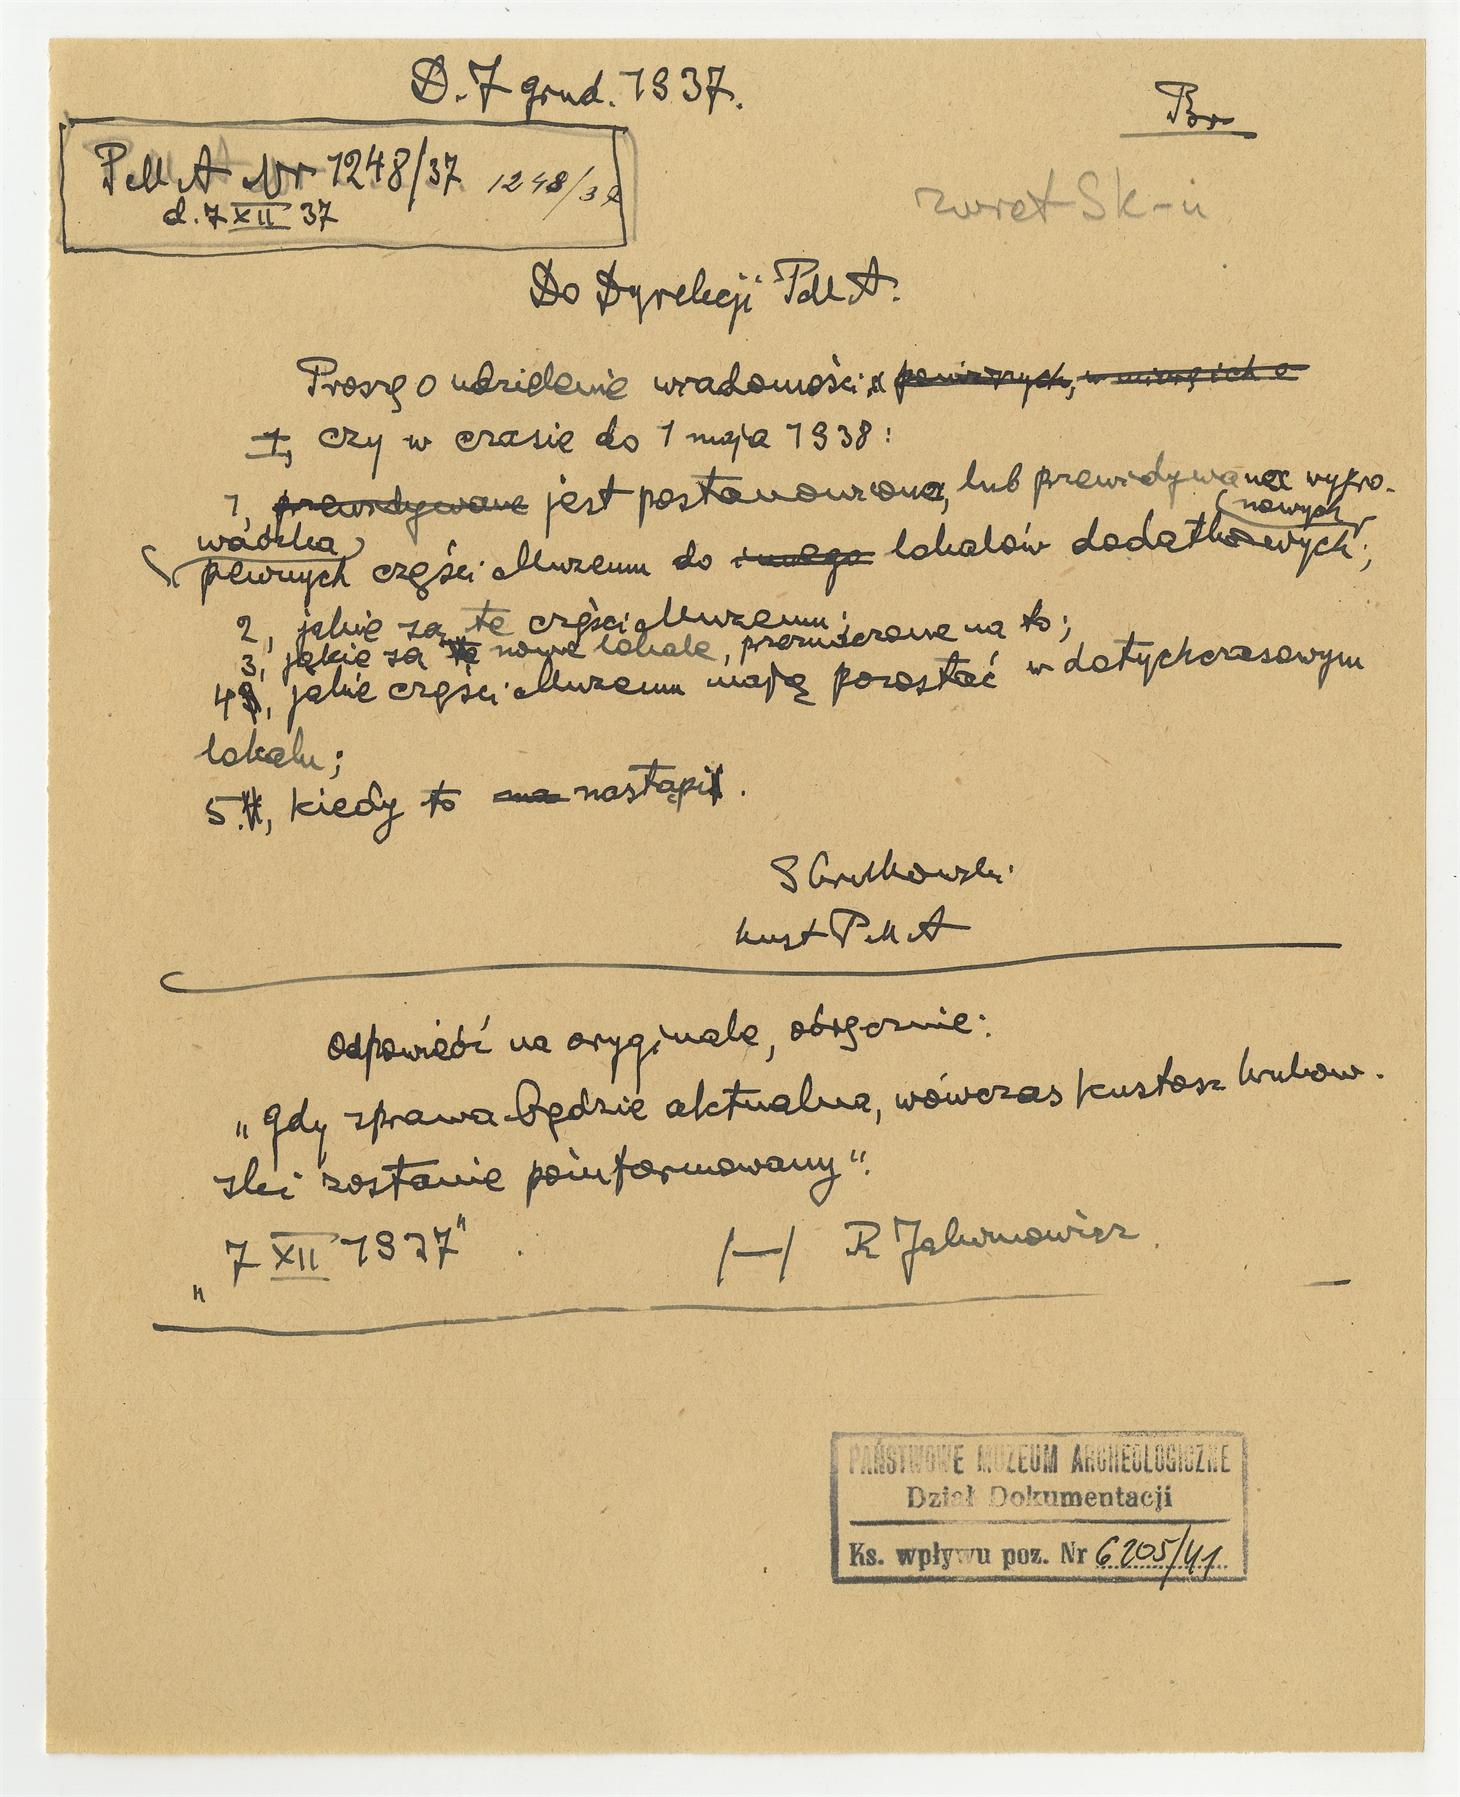 D. 7 grud. 1937.
Br
PMA Nr 1248/37 1248/37
d. 7 XII 37
zwrot Sk-u
Do Dyrekcji PMA.
Proszę o udzielenie wiadomości,
1, czy w czasie do 1 maja 1938:
1, przewidywane jest postanowiona, lub przewidywana wypro-
nowych
wadzka
pewnych części Muzeum do lokalów dodatkowych;
2, jakie są te części Muzeum;
3, jakie są te nowe lokale, przeznaczone na to;
4, jakie części Muzeum mają pozostać w dotychczasowym
lokalu;
5, kiedy to ma nastąpi.
S Krukowski
kust PMA
Odpowiedź na oryginale, odręcznie:
„gdy sprawa będzie aktualna, wówczas kustosz Krukow-
ski zostanie poinformowany".
„7 XII 1937"
/—/ R Jakimowicz
PAŃSTWOWE MUZEUM ARCHEOLOGICZNE
Dział Dokumentacji
Ks. wpływu poz. Nr 6205/41